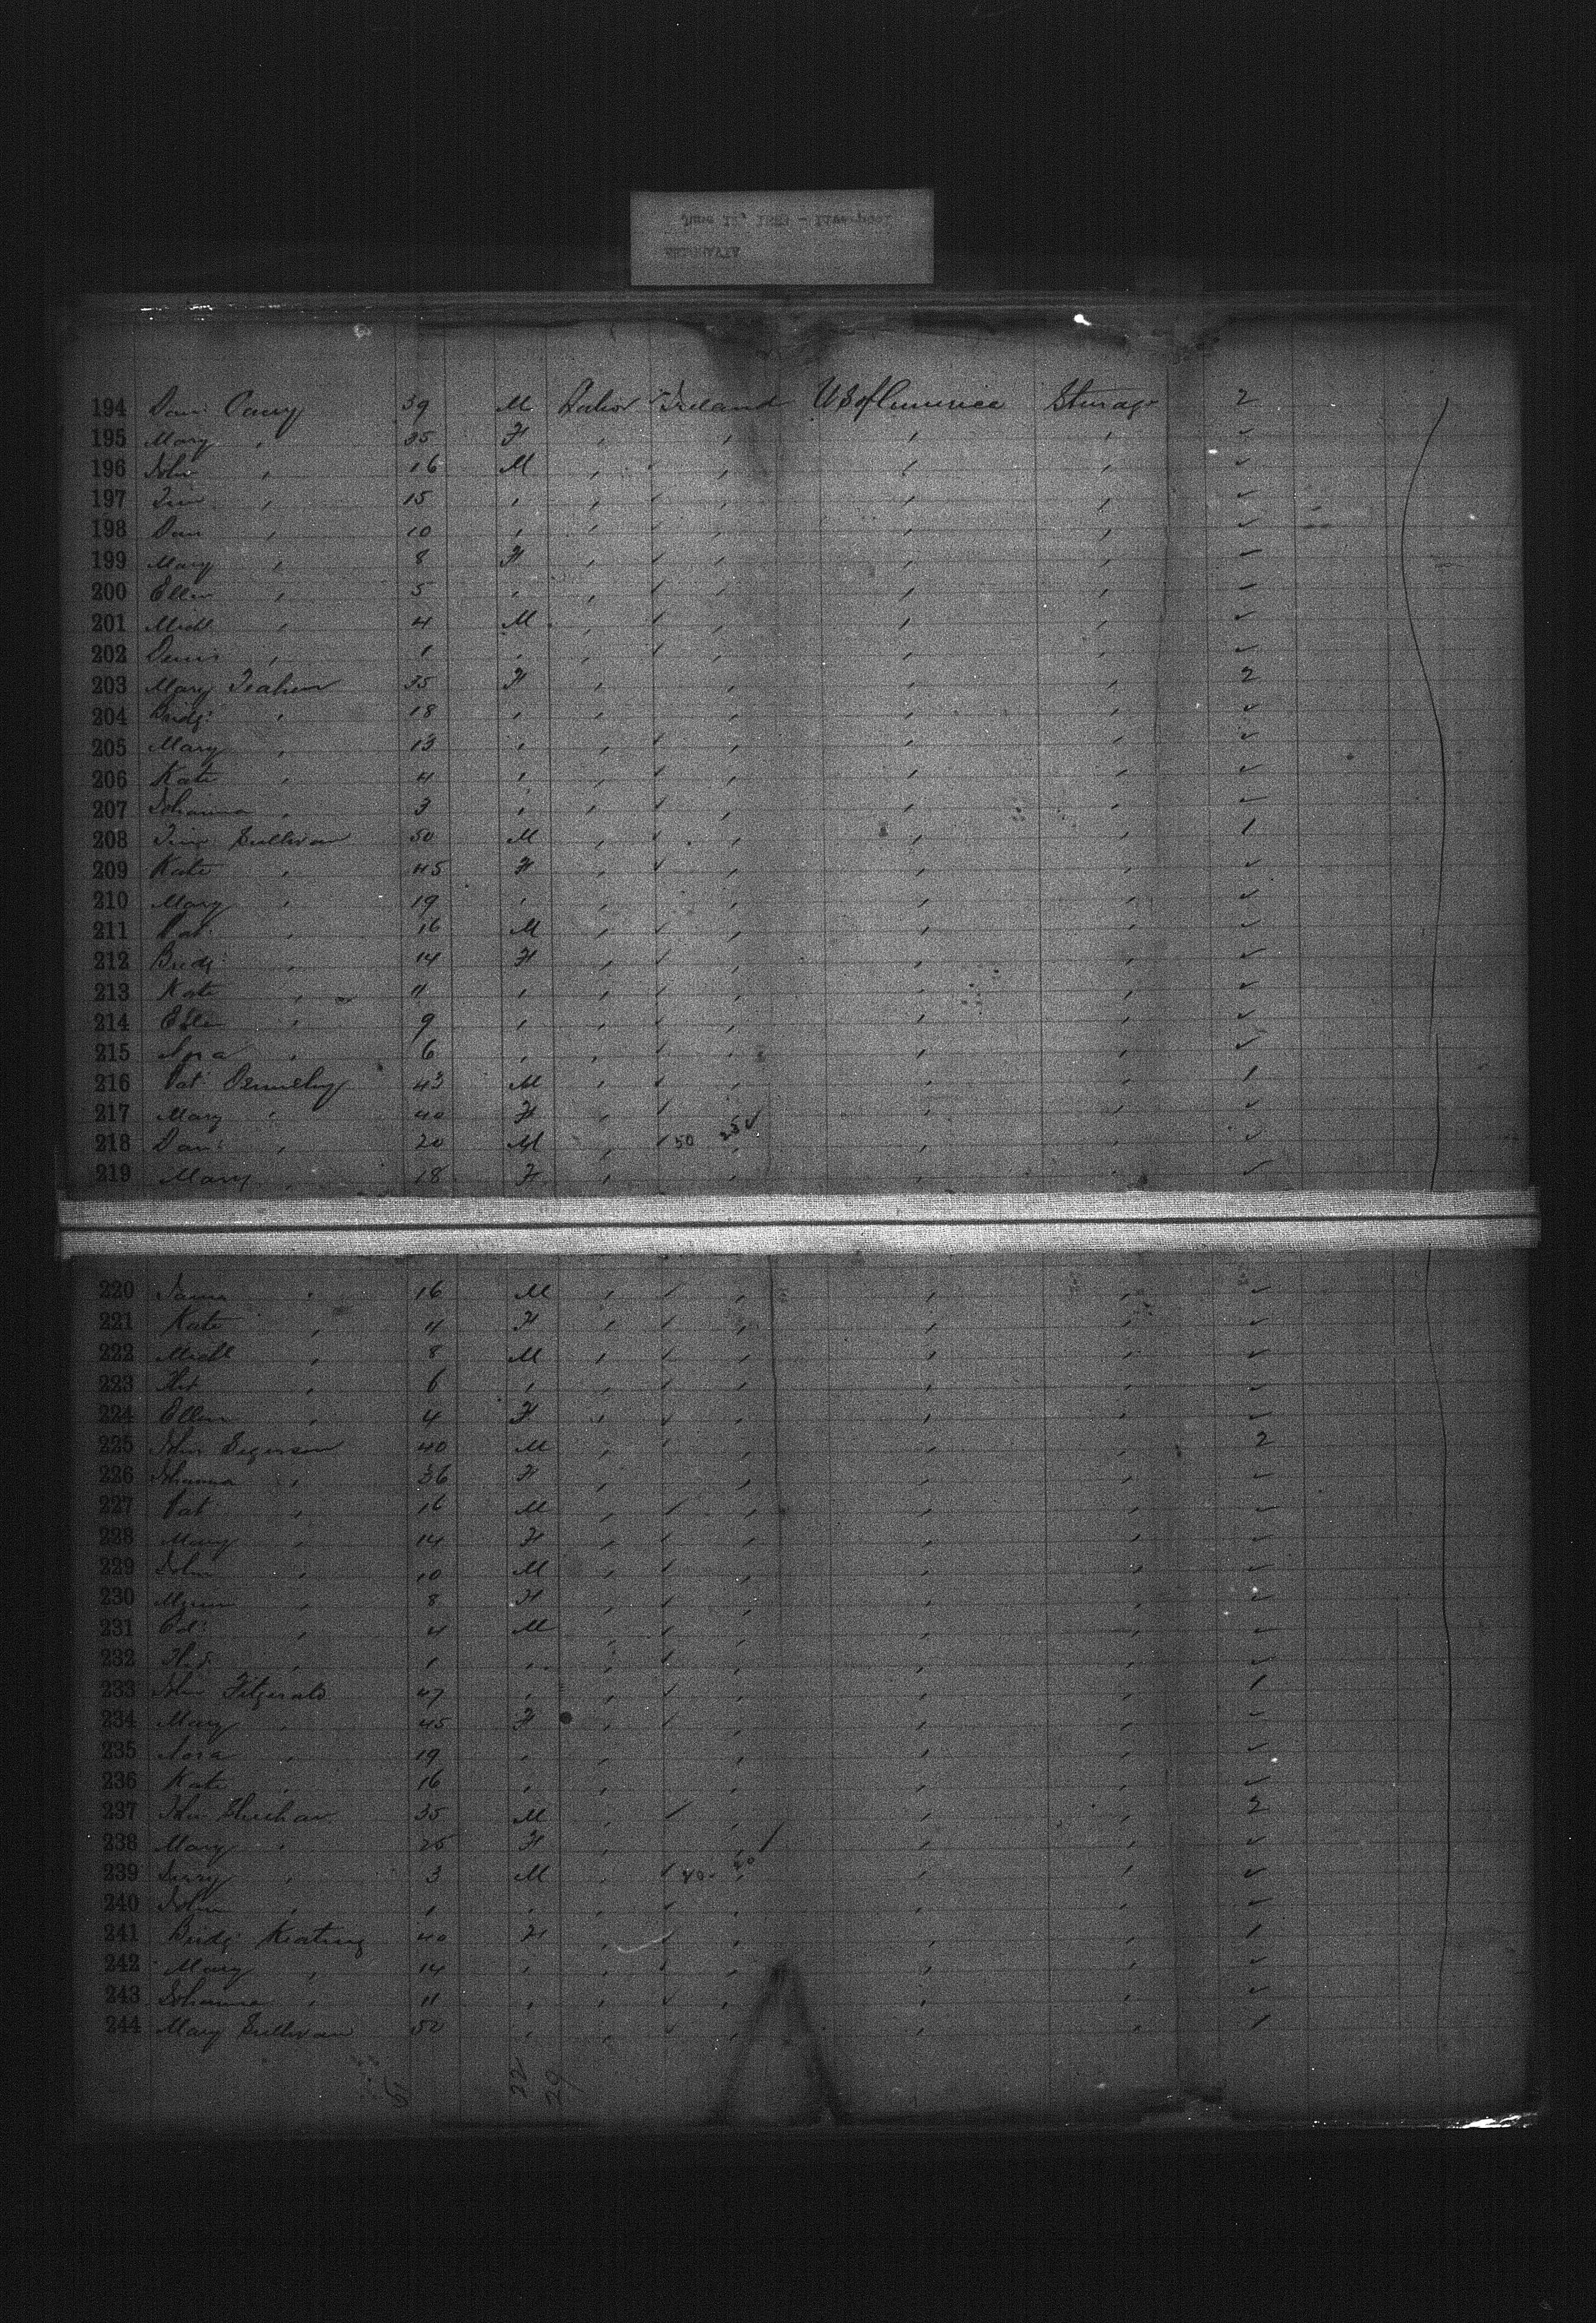 June 12, 188 - Liverpool
194 Dan: Carey 39 M Labor Ireland U S of America Steerage 2
195 Mary " 35 F " " " " ✓
196 John " 16 M " " " " ✓
197 " 15 " " " " " ✓
198 Dan " 10 " " " " " ✓
199 Mary " 8 F " " " " ✓
200 Ellen " 5 " " " " " ✓
201 Michl " 4 M " " " " ✓
202 Denis " 1 " " " " " ✓
203 Mary 35 F " " " " 2
204 Bridgt " 18 " " " " " ✓
205 Mary " 13 " " " " " ✓
206 Kate " 4 " " " " " ✓
207 Johanna " 3 " " " " " ✓
208 Sullivan 50 M " " " " 1
209 Kate " 45 F " " " " ✓
210 Mary " 19 " " " " " ✓
211 Pat " 16 M " " " " ✓
212 Bridgt " 14 F " " " " ✓
213 Kate " 11 " " " " " ✓
214 Ellen " 9 " " " " " ✓
215 Nora " 6 " " " " " ✓
216 Pat 43 M " " " " 1
217 Mary " 40 F " " " " ✓
218 Dan: " 20 M " 50 " " " ✓
219 Mary " 18 F " " " " ✓
220 James " 16 M " " " " ✓
221 Kate " 11 F " " " " ✓
222 Michl " 8 M " " " " ✓
223 " 6 " " " " " ✓
224 Ellen " 4 F " " " " ✓
225 John Segerson 40 M " " " " 2
226 Johanna " 36 F " " " " ✓
227 Pat " 16 M " " " " ✓
228 Mary " 14 F " " " " ✓
229 John " 10 M " " " " ✓
230 " 8 F " " " " ✓
231 " 4 M " " " " ✓
232 " 1 " " " " " ✓
233 John Fitzgerald 47 " " " " " 1
234 Mary " 45 F " " " " ✓
235 Nora " 19 " " " " " ✓
236 Kate " 16 " " " " " ✓
237 John 35 M " " " " 2
238 Mary " 25 F " " " " ✓
239 " 3 M " 40 " " " ✓
240 John " 1 " " " " " ✓
241 Bridgt Keating 40 F " " " " 1
242 Mary " 14 " " " " " ✓
243 Johanna " 11 " " " " " ✓
244 Mary Sullivan 50 " " " " " 1
22
29